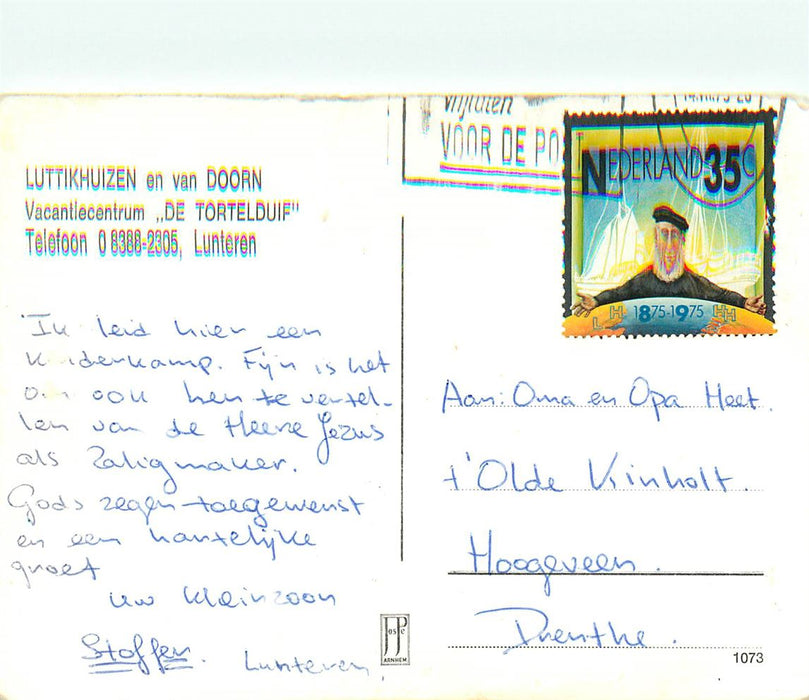 LUTTIKHUIZEN en van DOORN
Vacantiecentrum „DE TORTELDUIF"
Telefoon 0 8388-2305, Lunteren
Ik leid hier een
kinderkamp. Fijn is het
om ook hen te vertel-
len van de Heere Jezus
als Zaligmaker.
Gods zegen toegewenst
en een hartelijke
groet
Uw kleinzoon
Stoffer.
Lunteren.
vrijlaten
VOOR DE PO
NEDERLAND 35C
L H 1875-1975 HH
Aan: Oma en Opa Heet.
t'Olde Kinholt.
Hoogeveen.
Drenthe.
JosPe
ARNHEM
1073